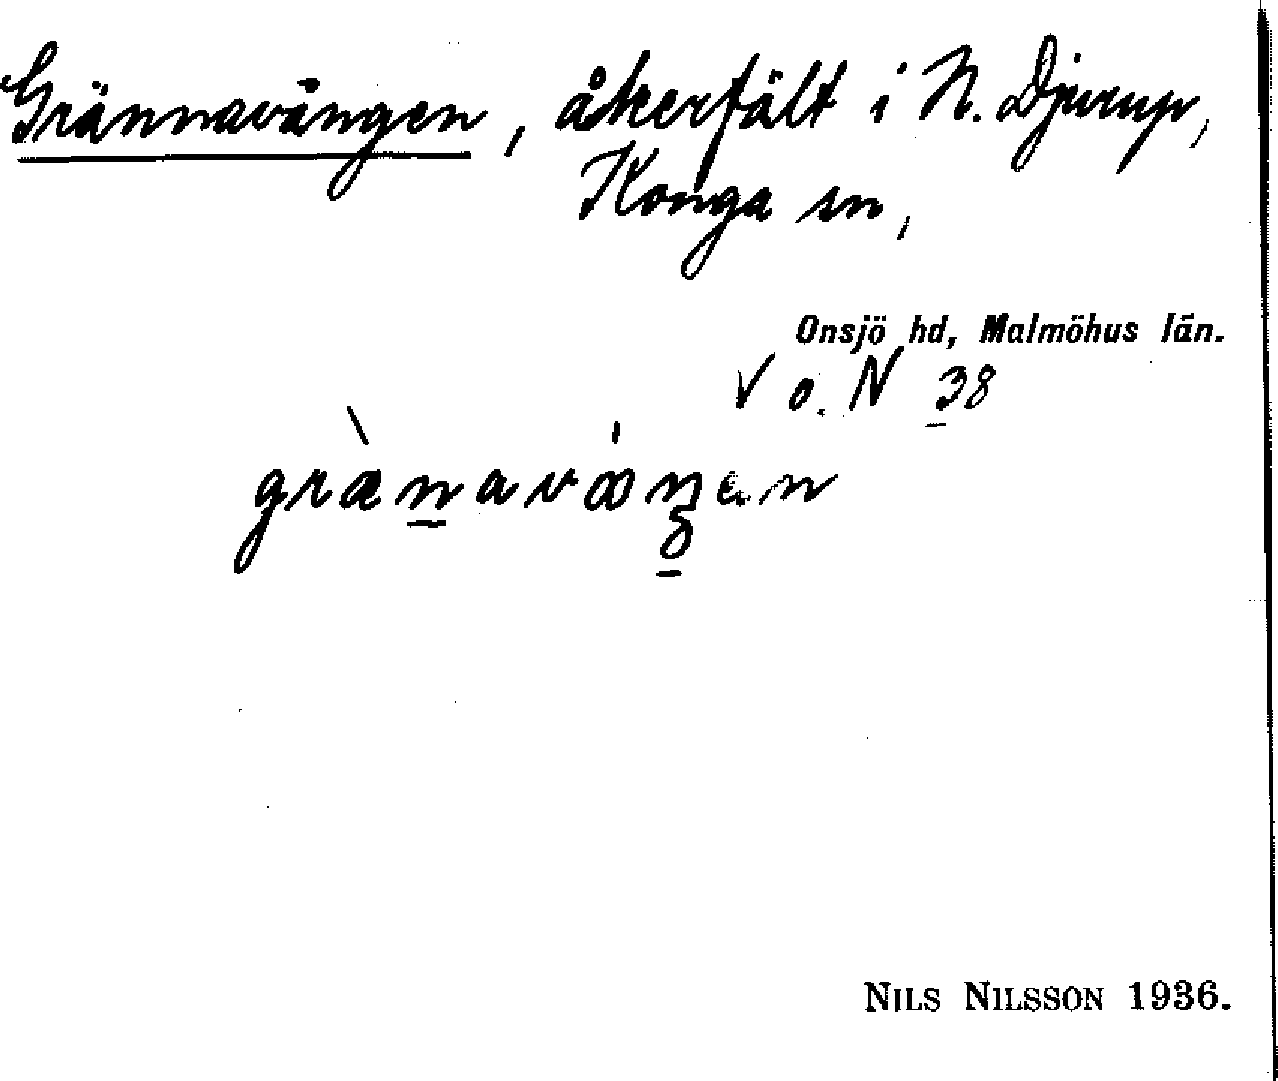 Grännavången, åkerfält i N. Djurup,
Konga sn,
Onsjö hd, Malmöhus län.
V o. N 38
grænavåŋen
NILS NILSSON 1936.